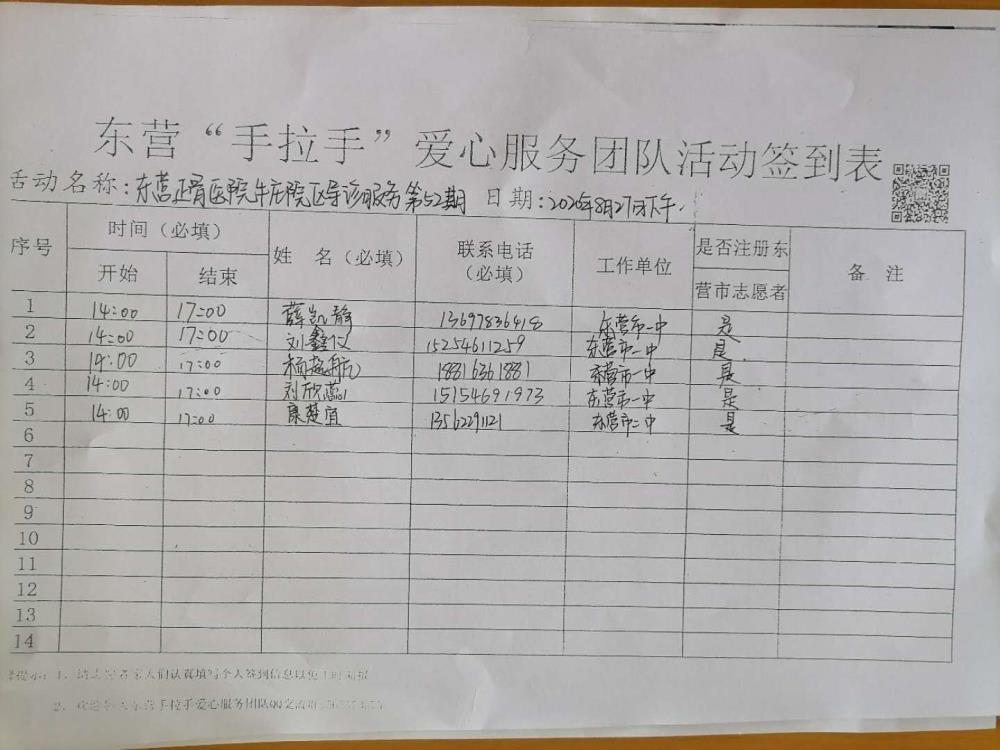 东营“手拉手”爱心服务团队活动签到表
活动名称：东营正骨医院牛庄院区导诊服务第52期 日期：2020年8月21日下午.
序号 时间（必填） 姓 名（必填） 联系电话（必填） 工作单位 是否注册东营市志愿者 备 注
开始 结束
1 14:00 17:00 薛凯静 13697836418 东营市一中 是
2 14:00 17:00 刘鑫仪 15254611259 东营市一中 是
3 14:00 17:00 杨超航 18816361881 东营市一中 是
4 14:00 17:00 刘欣蕊 15154691973 东营市一中 是
5 14:00 17:00 康楚宜 13562291121 东营市二中 是
6
7
8
9
10
11
12
13
14
提示：1、 人们认真填写个人签到信息以便
2、 手拉手爱心服务团队QQ交流